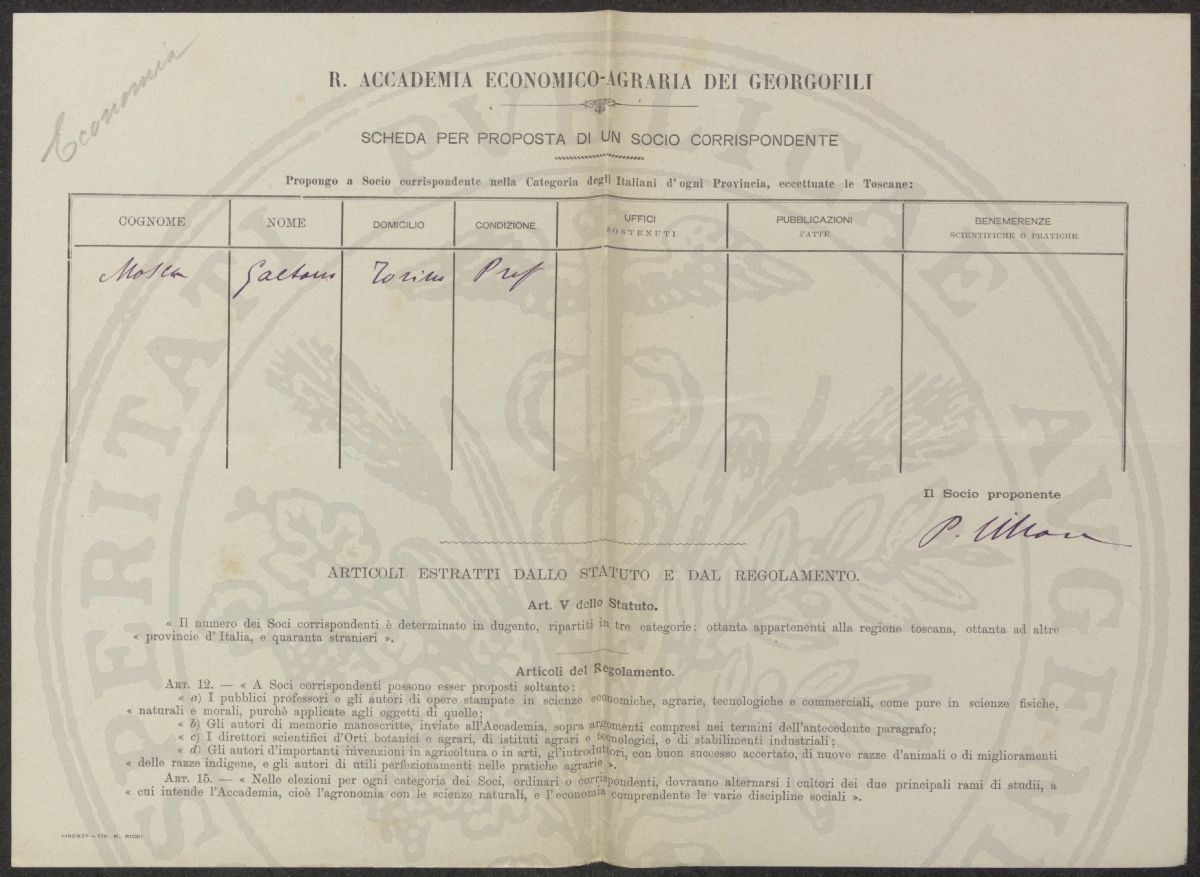 Economia
R. ACCADEMIA ECONOMICO-AGRARIA DEI GEORGOFILI
SCHEDA PER PROPOSTA DI UN SOCIO CORRISPONDENTE
Propongo a Socio corrispondente nella Categoria degli Italiani d'ogni Provincia, eccettuate le Toscane:
COGNOME NOME DOMICILIO CONDIZIONE UFFICI SOSTENUTI PUBBLICAZIONI FATTE BENEMERENZE SCIENTIFICHE O PRATICHE
Mosca Gaetano Torino Prof
Il Socio proponente
P.
ARTICOLI ESTRATTI DALLO STATUTO E DAL REGOLAMENTO.
Art. V dello Statuto.
« Il numero dei Soci corrispondenti è determinato in dugento, ripartiti in tre categorie: ottanta appartenenti alla regione toscana, ottanta ad altre
« provincie d'Italia, e quaranta stranieri ».
Articoli del Regolamento.
ART. 12. — « A Soci corrispondenti possono esser proposti soltanto:
« a) I pubblici professori e gli autori di opere stampate in scienze economiche, agrarie, tecnologiche e commerciali, come pure in scienze fisiche,
« naturali e morali, purchè applicate agli oggetti di quelle;
« b) Gli autori di memorie manoscritte, inviate all'Accademia, sopra argomenti compresi nei termini dell'antecedente paragrafo;
« c) I direttori scientifici d'Orti botanici e agrari, di istituti agrari e tecnologici, e di stabilimenti industriali;
« d) Gli autori d'importanti invenzioni in agricoltura o in arti, gl'introduttori, con buon successo accertato, di nuove razze d'animali o di miglioramenti
« delle razze indigene, e gli autori di utili perfezionamenti nelle pratiche agrarie ».
ART. 15. — « Nelle elezioni per ogni categoria dei Soci, ordinari o corrispondenti, dovranno alternarsi i cultori dei due principali rami di studii, a
« cui intende l'Accademia, cioè l'agronomia con le scienze naturali, e l'economia comprendente le varie discipline sociali ».
FIRENZE - TIP. M. RICCI